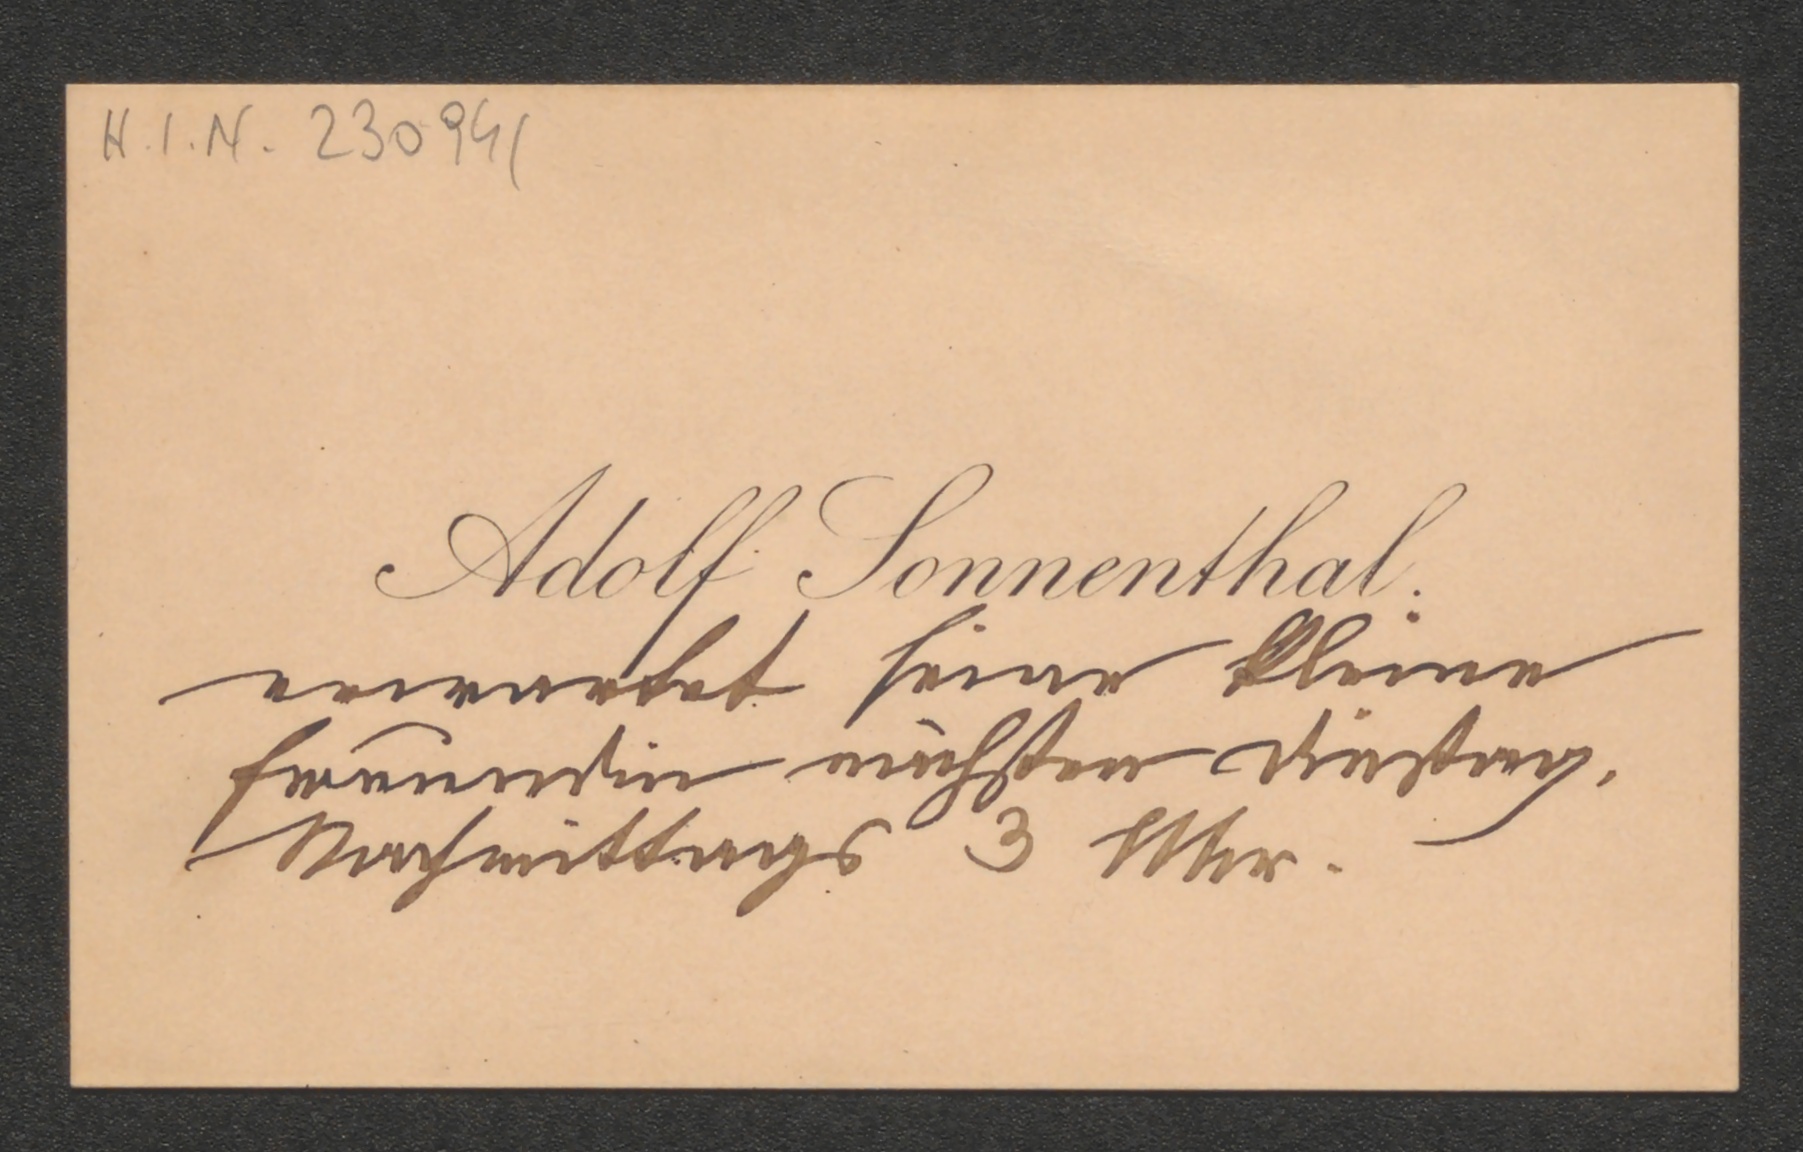 H.I.N. 230941
Adolf Sonnenthal.
erwartet seine kleine
Freundin nächsten Dinstag,
Nachmittags 3 Uhr.